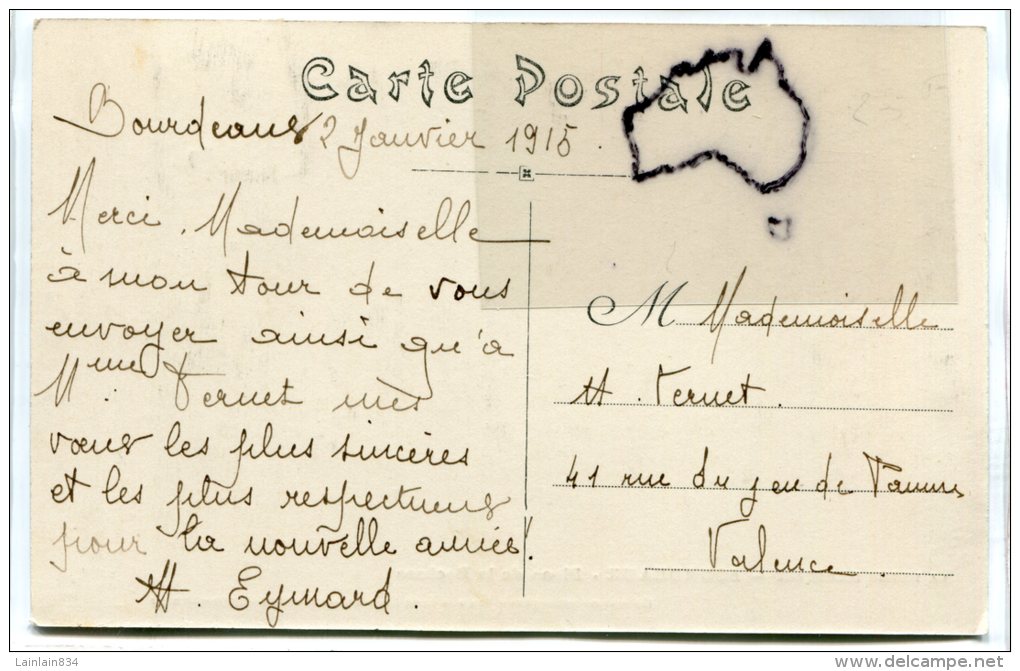 Carte Postale
Bourdeaux 2 Janvier 1915.
Merci, Mademoiselle
à mon tour de vous
envoyer ainsi qu'à
Mme. Vernet mes
vœux les plus sincères
et les plus respectueux
pour la nouvelle année!
H. Eymard.
M Mademoiselle
H. Vernet.
41 rue du jeu de Paume
Valence.
Lainlain834
www.delcampe.net